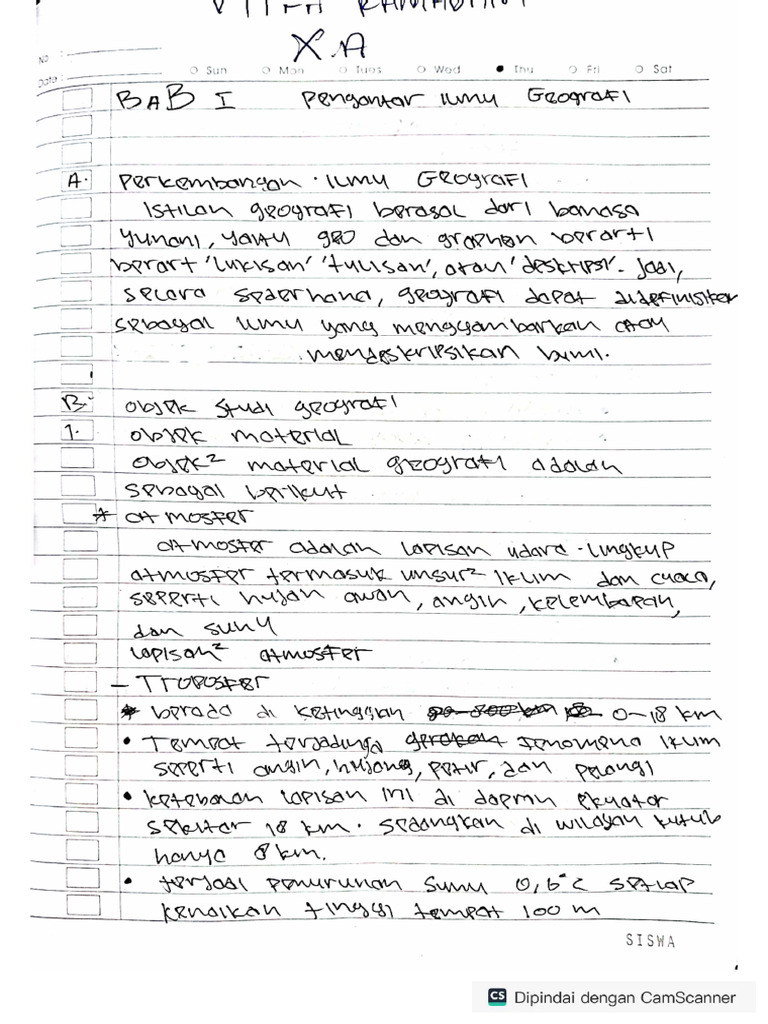 X.A
No :
Date :
Sun Mon Tues Wed Thu Fri Sat
BAB I Pengantar Ilmu Geografi
A. Perkembangan . Ilmu Geografi
Istilah geografi berasal dari bahasa
Yunani, yaitu geo dan graphen berarti
berart 'lukisan' 'tulisan', atau 'deskripsi'. Jadi,
secara sederhana, geografi dapat didefinisikan
sebagai ilmu yang menggambarkan atau
mendeskripsikan bumi.
B. Objek Studi geografi
1. Objek material
Objek² material geografi adalah
sebagai berikut
* atmosfer
atmosfer adalah lapisan udara. lingkup
atmosfer termasuk unsur² iklim dan cuaca,
seperti hujan awan, angin, kelembapan,
dan suhu
lapisan² atmosfer
- Troposfer
* berada di ketinggian 0-18 km
• Tempat terjadinya fenomena iklim
seperti angin, hujan, petir, dan pelangi
• ketebalan lapisan ini di daerah ekuator
sekitar 18 km. sedangkan di wilayah kutub
hanya 8 km.
• terjadi penurunan suhu 0,6°C setiap
kenaikan tinggi tempat 100 m
SISWA
CS Dipindai dengan CamScanner